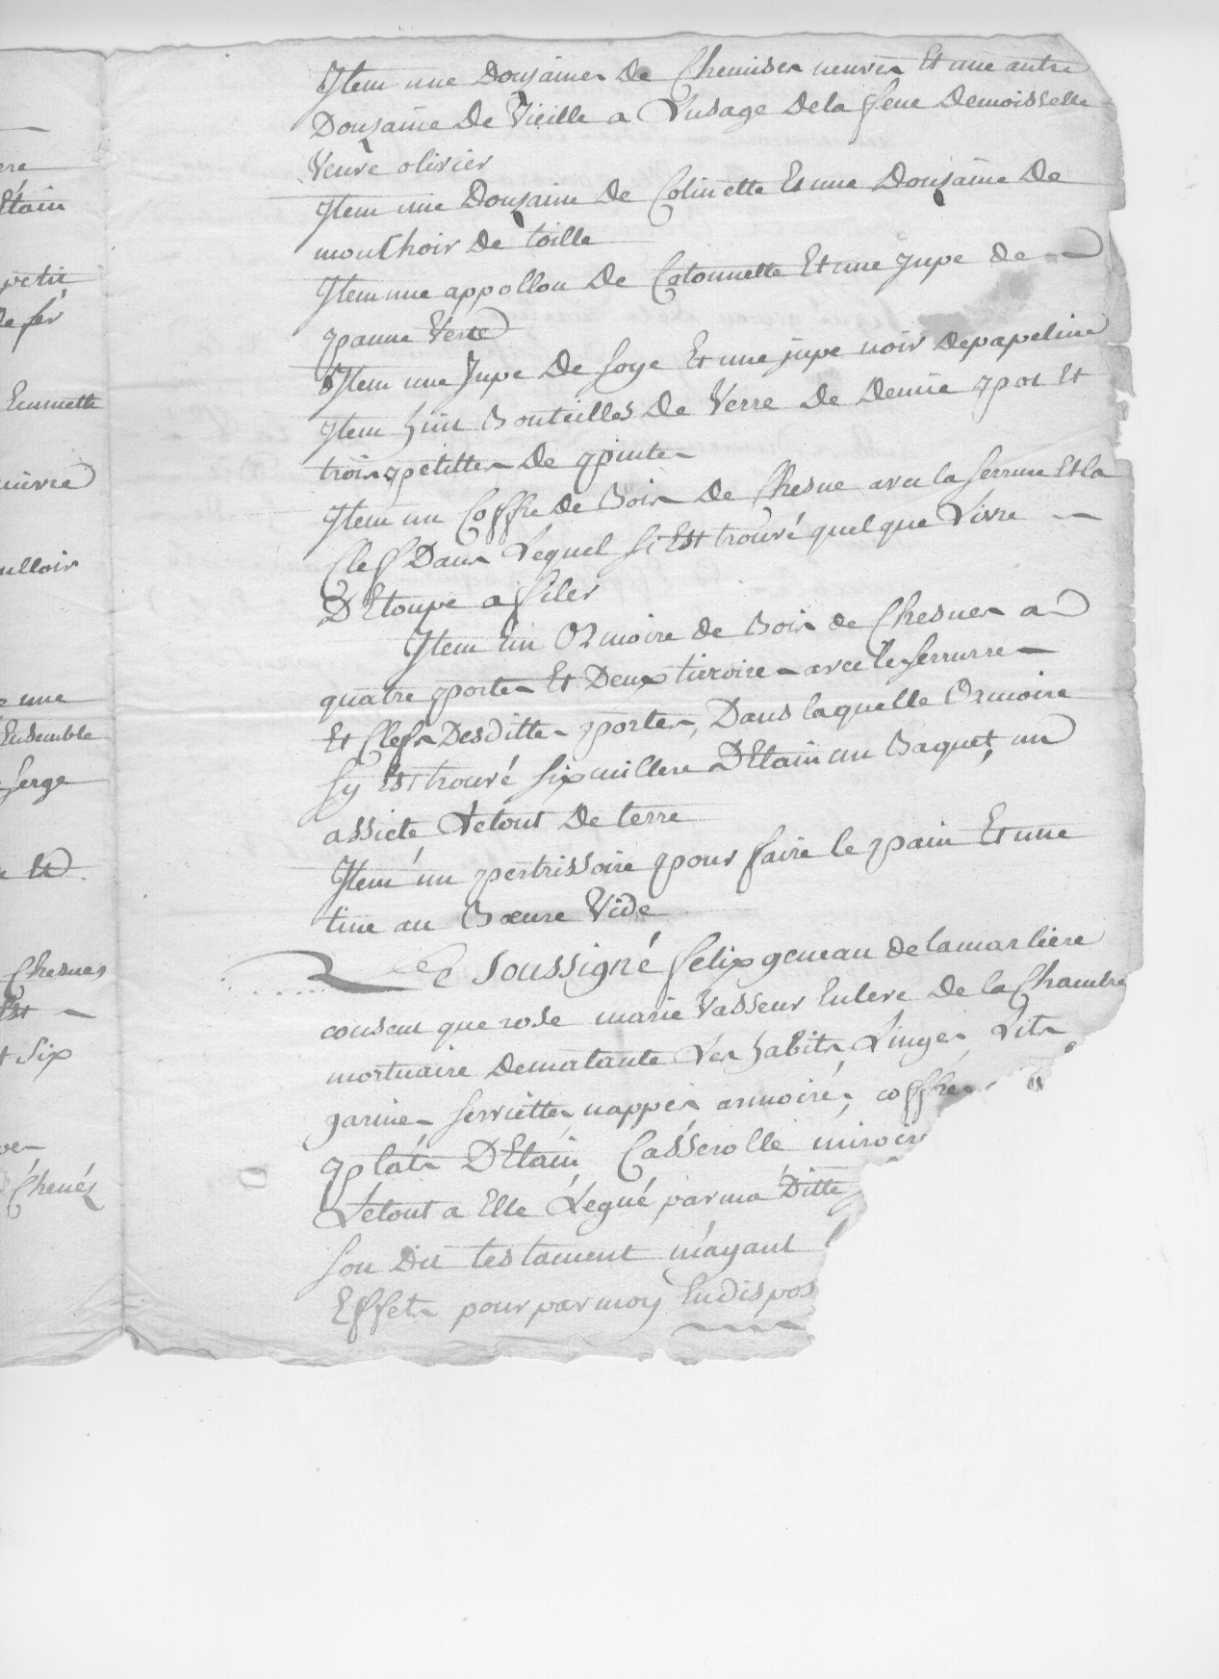 ere
Etain
petit
de fer
Emmette
cuivre
ulloir
une
Ensemble
serge
Et
Chesnes
Est
Six
Chenés
Jtem une Dousaine De Chemises neuves Et une autre
Dousaine De Vieille a L'usage Dela feue Demoisselle
Veuve olivier
Jtem une Dousaine De Colinette Et une Dousaine De
mouchoir De toille
Jtem une appollon De Cotonnette Et une jupe de
panne Verte
Jtem une Jupe De soye Et une jupe noir De papeline
Jtem huit Bouteilles De Verre De Demie pot Et
trois petittes De pinte
Jtem un Coffre De Bois De Chesne avec la serrure Et la
Clef Dans Lequel s'i Est trouvé quelque Livre
D'Etoupe a filer
Jtem un Ormoire de Bois de Chesnes a
quatre portes Et Deux tiroire avec le serrurre
Et Clefs Desditte portes, Dans laquelle Ormoire
s'y Est trouvé six cuillere D'Etain un Baquet, un
assiete Letout De terre
Jtem un pertrissoire pour faire le pain Et une
tine au Boeure Vide
Le Soussigné felix geneau delamarliere
consent que rose marie Vasseur Enleve De la Chambre
mortuaire Dematante Les habits Linges Lits
garnie serviettes nappes armoire, coffre
plats D'Etain Casserolle miroir
Letout a Elle Legué par ma Ditte
son Dit testament m'ayant
Effets pour par moy En dispos